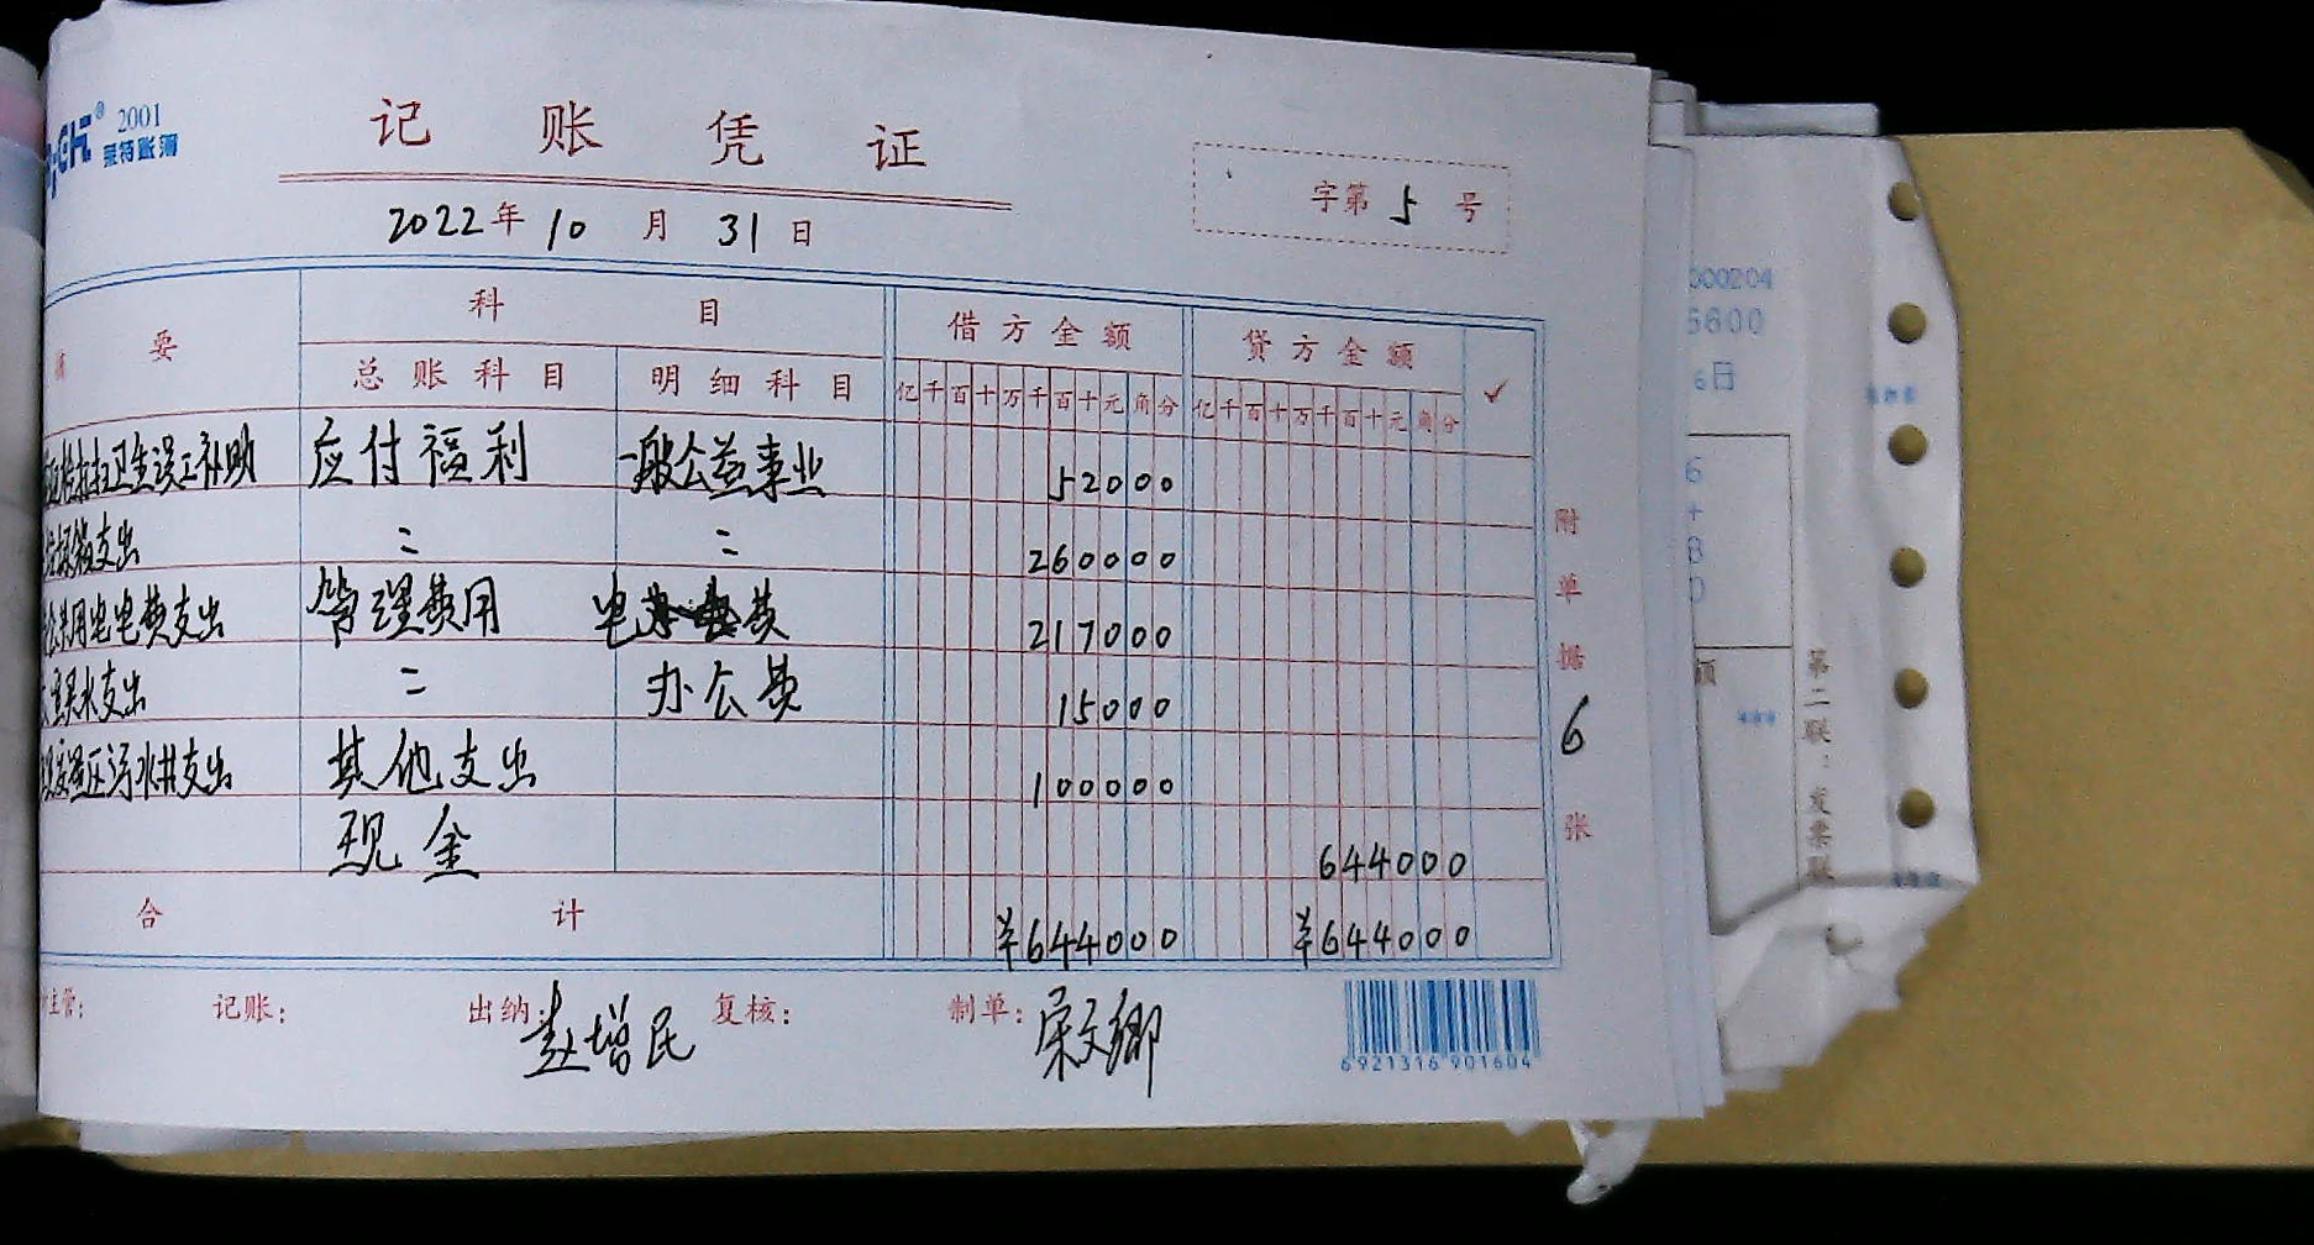 2001
莱特账簿
记账凭证
2022年10月31日
字第5号
摘要 科目 借方金额 贷方金额 ✓
总账科目 明细科目 亿千百十万千百十元角分 亿千百十万千百十元角分
卫生误工补助 应付福利 一般公益事业 52000
支出 = = 260000
公共用电电费支出 管理费用 电费 217000
水支出 = 办公费 15000
污水井支出 其他支出 100000
现金 644000
合计 ¥644000 ¥644000
附单据6张
主管: 记账: 出纳:赵增民 复核: 制单:宋文卿
6921316901604
000204
6600
6日
6
+
8
0
额
第二联:发票联